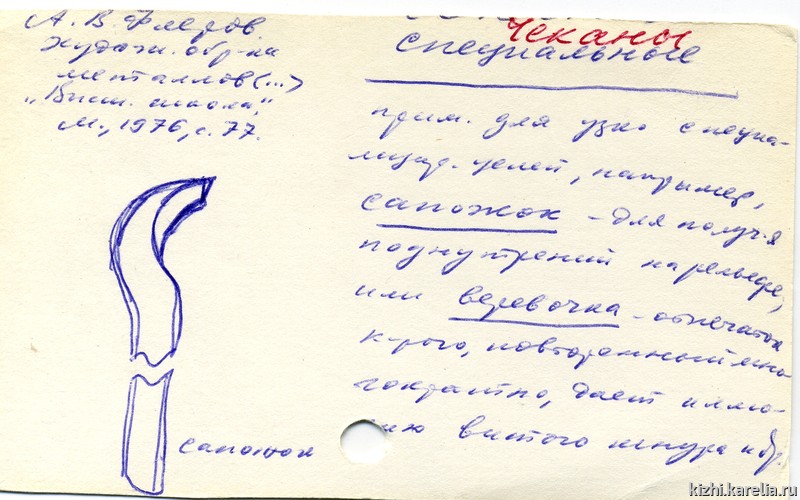 А. В. Флеров.
Худож. обр-ка
металлов (...)
"Высш. школа",
М., 1976, с. 77.
Чеканы
специальные
прим. для узко специа-
лизир. целей, например,
сапожок - для получ-я
поднутрений на рельефе,
или веревочка - отпечаток
к-рого, повторенный мно-
гократно, дает иллю-
зию витого шнура и др.
сапожок
kizhi.karelia.ru